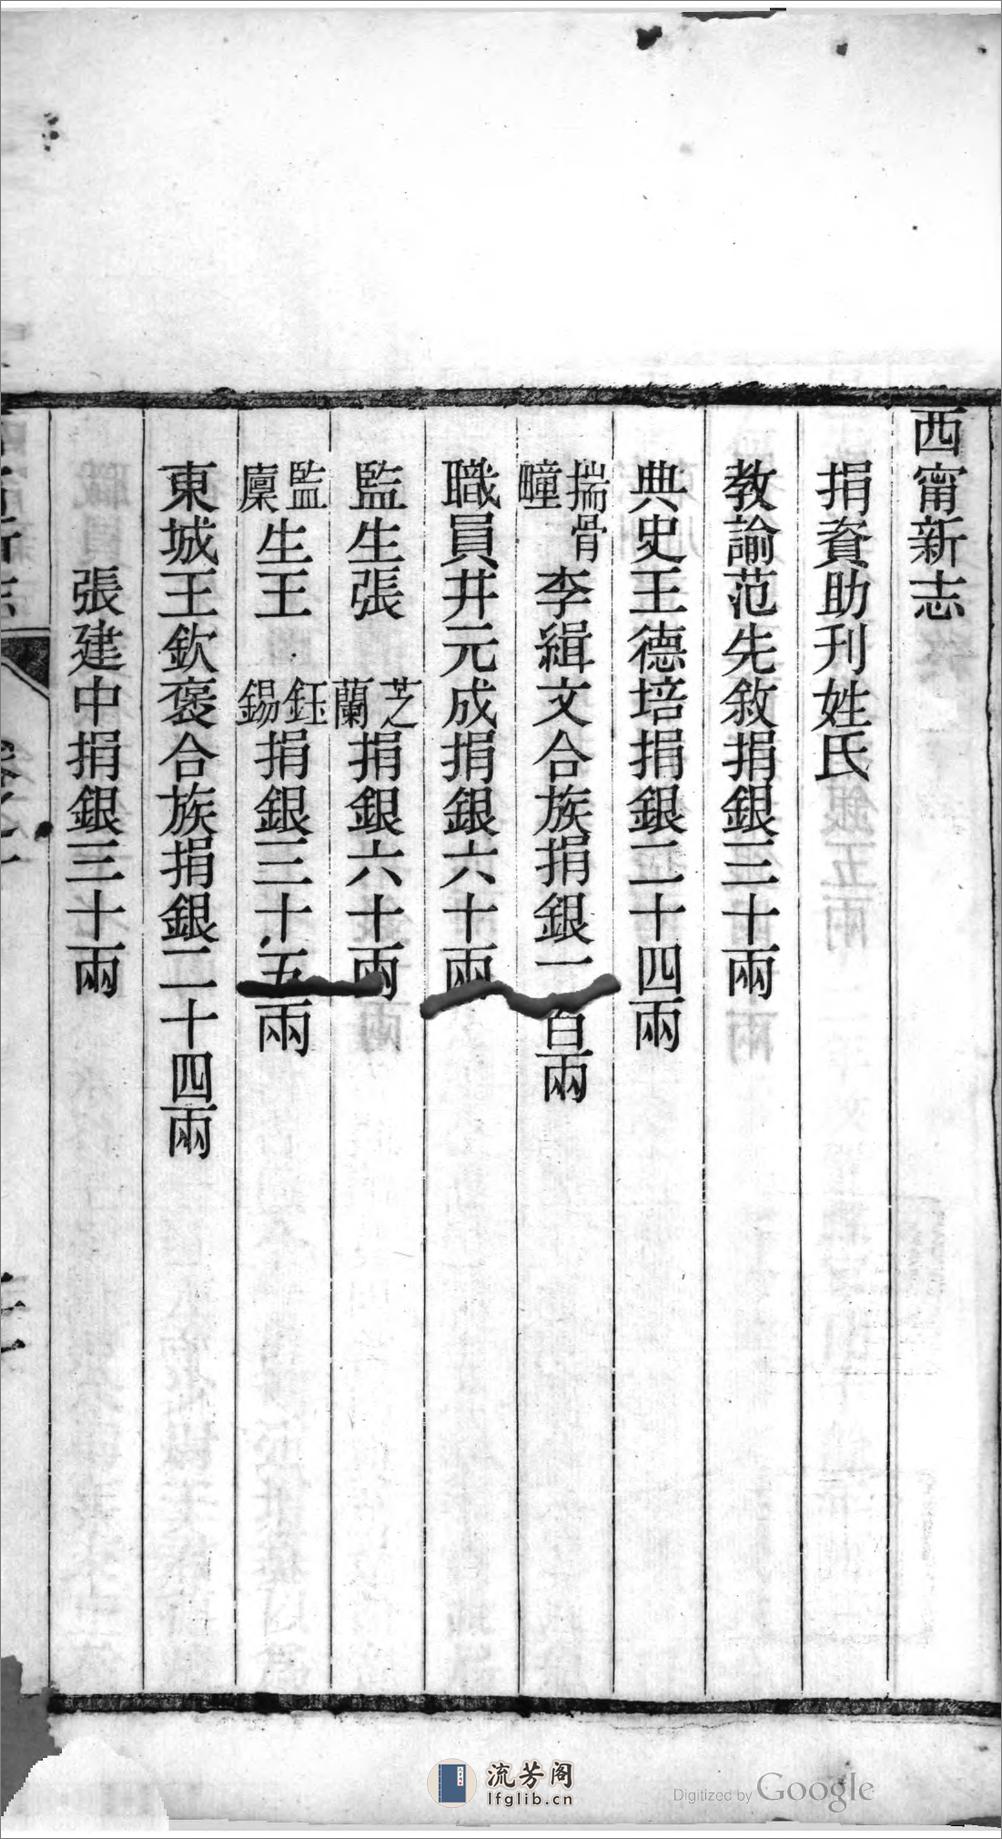 西甯新志
捐資助刊姓氏
教諭范先敘捐銀三十兩
典史王德培捐銀二十四兩
揣骨疃李緝文合族捐銀一百兩
職員井元成捐銀六十兩
監生張芝蘭捐銀六十兩
監廩生王鈺錫捐銀三十五兩
東城王欽褒合族捐銀二十四兩
張建中捐銀三十兩
流芳阁
lfglib.cn
Digitized by Google